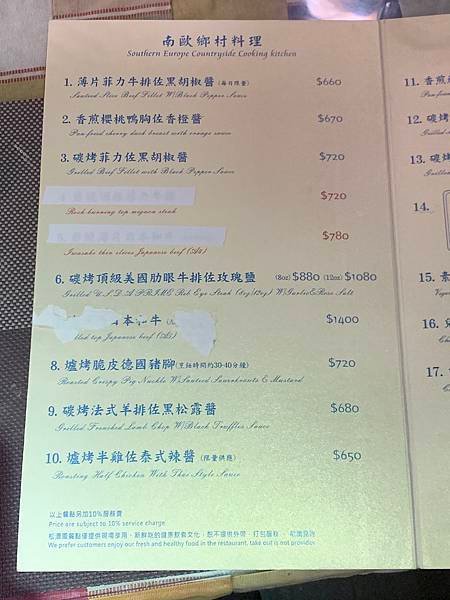 南歐鄉村料理
Southern Europe Countryside Cooking kitchen
1. 薄片菲力牛排佐黑胡椒醬 (每日限量) $660
Sauteed Slice Beef Fillet W/Black Pepper Sauce
2. 香煎櫻桃鴨胸佐香橙醬 $670
Pan-fried cherry duck breast with orange sauce
3. 碳烤菲力佐黑胡椒醬 $720
Grilled Beef Fillet with Black Pepper Sauce
$720
Rock burning top steak
$780
thin slices Japanese beef (A5)
6. 碳烤頂級美國肋眼牛排佐玫瑰鹽 (8oz) $880 (12oz) $1080
Grilled U.S.D.A PRIME Rib Eye Steak (8oz/12oz) W/Garlic&Rose Salt
本 牛 $1400
lled top Japanese beef (A5)
8. 爐烤脆皮德國豬腳 (烹飪時間約30-40分鐘) $720
Roasted Crispy Pig Nuckle W/Sauteed Sauerkrauts & Mustard
9. 碳烤法式羊排佐黑松露醬 $680
Grilled Frenched Lamb Chop W/Black Truffles Sauce
10. 爐烤半雞佐泰式辣醬 (限量供應) $650
Roasting Half Chicken With Thai Style Sauce
以上餐點另加10%服務費
Price are subject to 10% service charge
We prefer customers enjoy our fresh and healthy food in the restaurant, take out is not provided
11. 香煎
Pan-fr
12. 碳烤
Grilled
13. 碳烤
Grilled
14.
15. 素
Vege
16.
Ch
17.